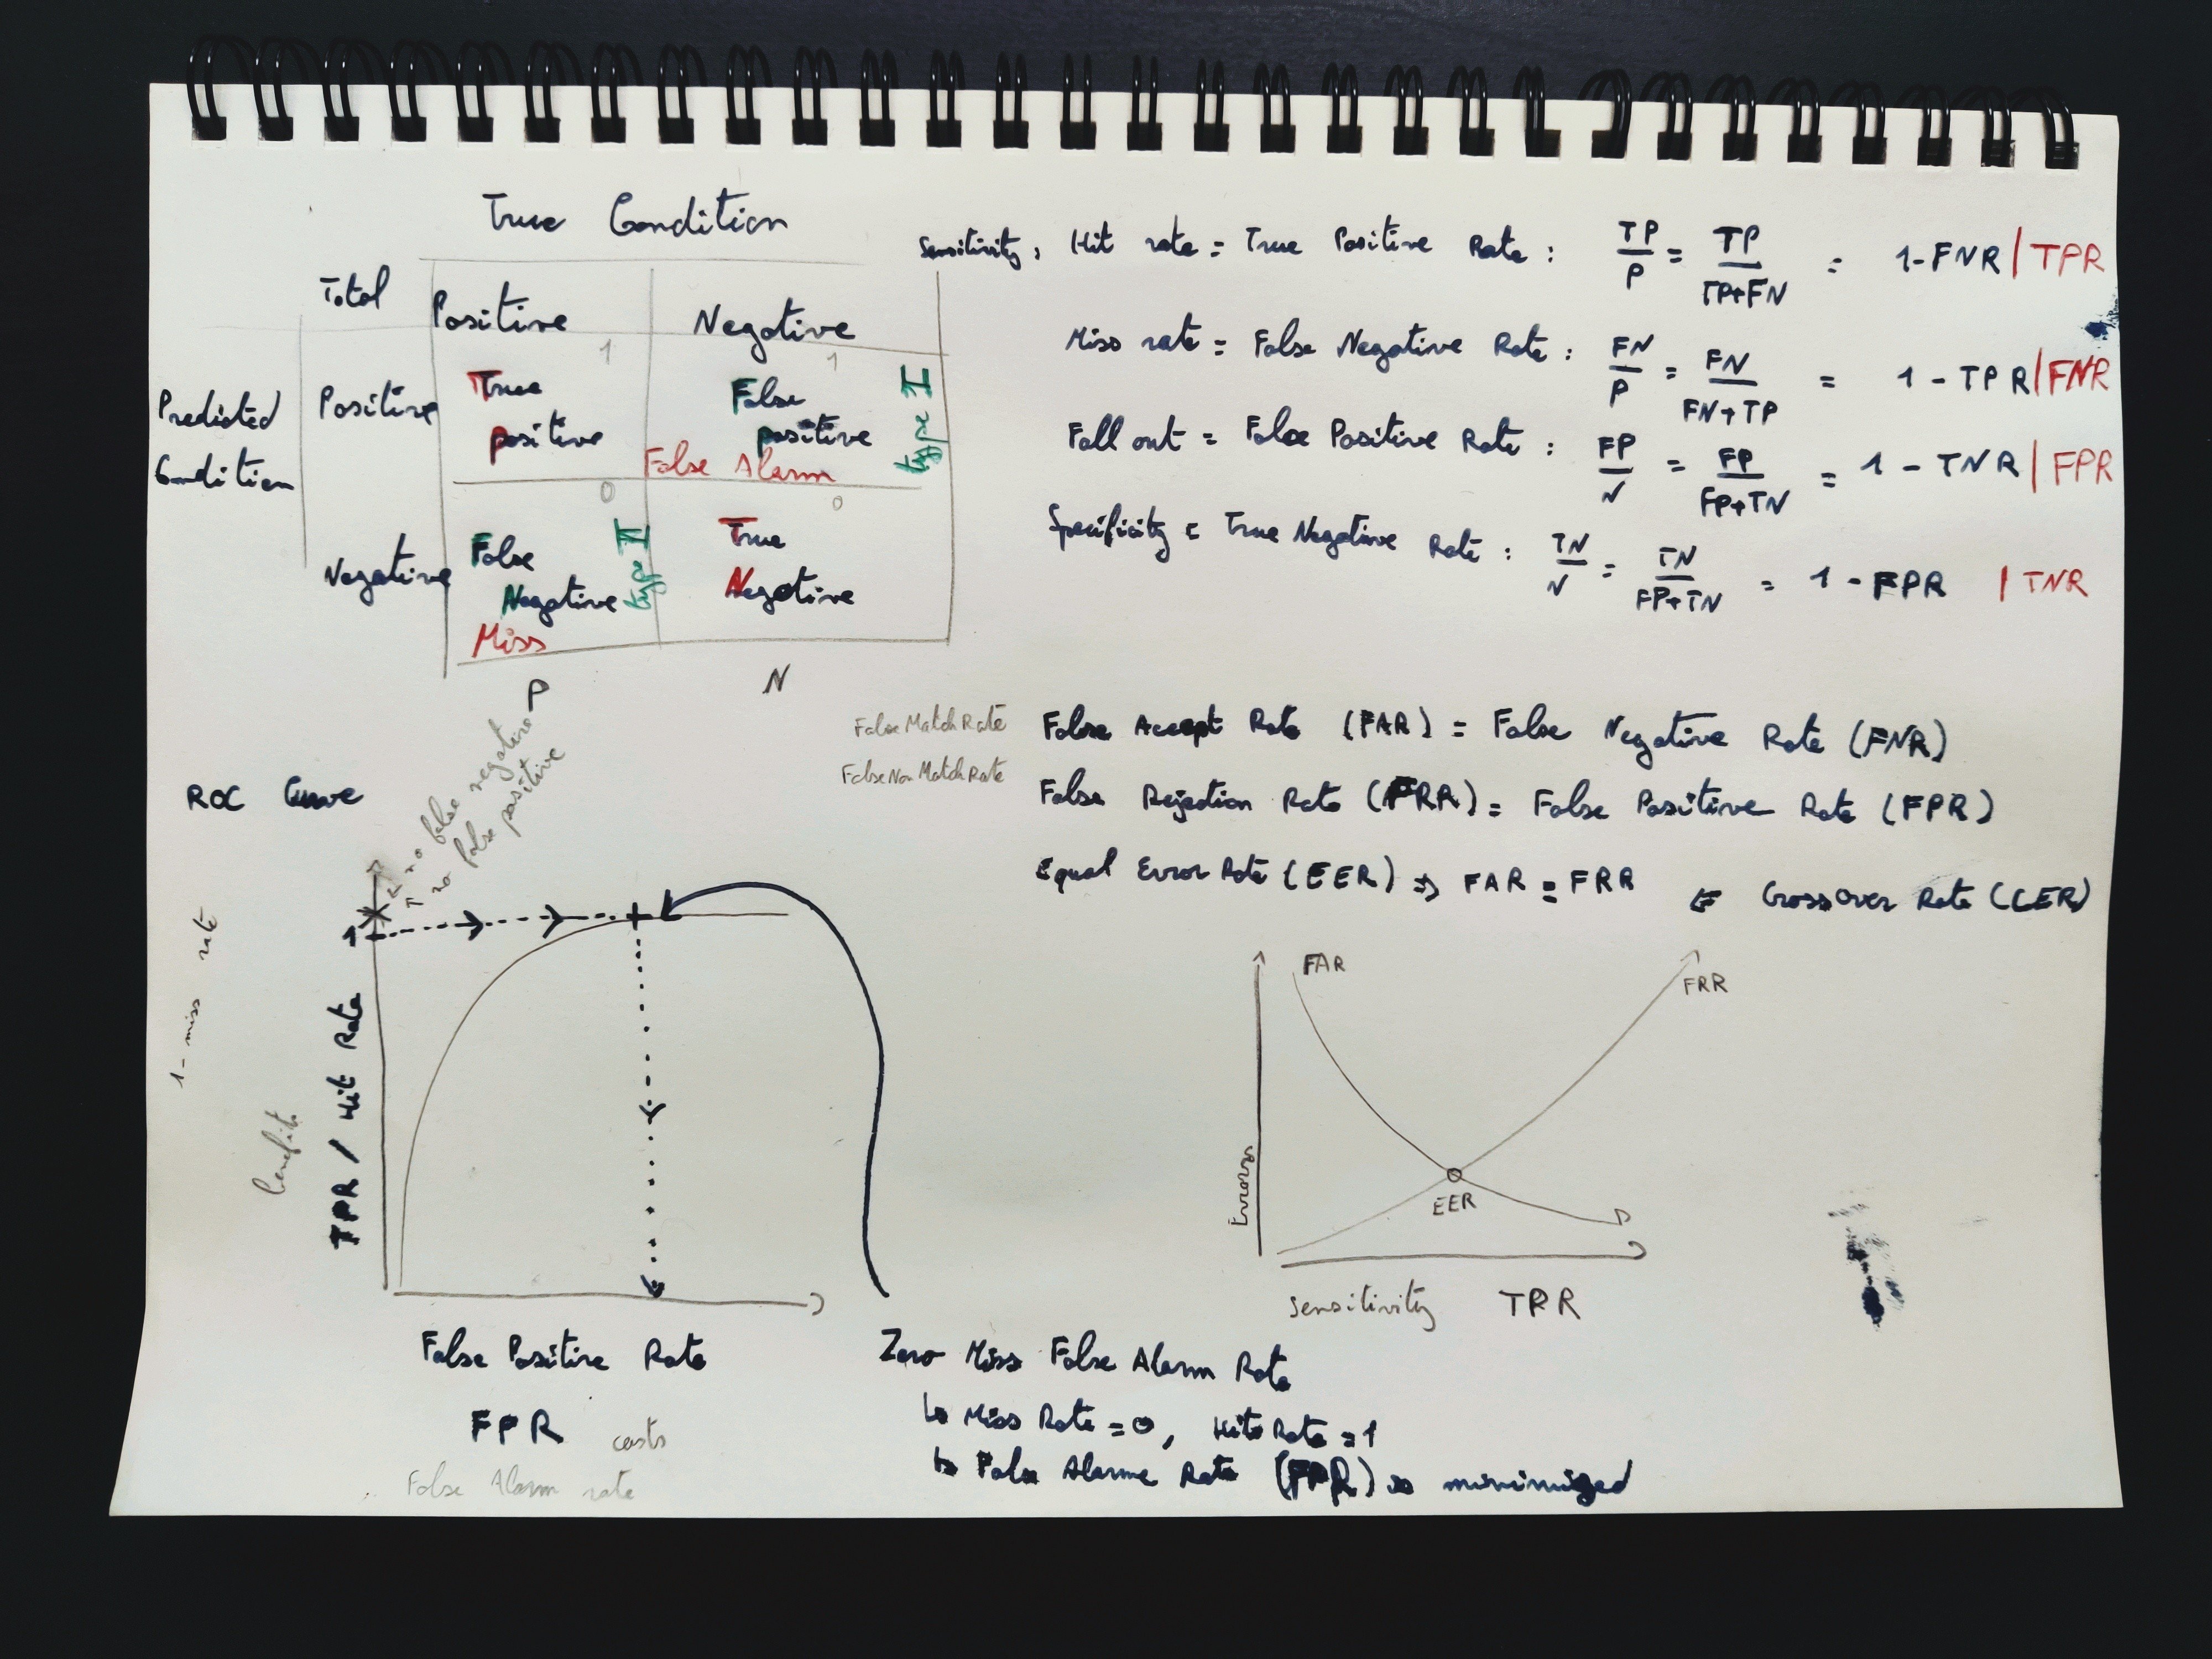 True Condition
Total Positive Negative
1 1
Predicted Condition
Positive
True positive
False positive
False Alarm
type I
0 0
Negative
False Negative
Miss
type II
True Negative
P N
Sensitivity, Hit rate = True Positive Rate : TP/P = TP/TP+FN = 1-FNR | TPR
Miss rate = False Negative Rate : FN/P = FN/FN+TP = 1 - TPR | FNR
Fall out = False Positive Rate : FP/N = FP/FP+TN = 1 - TNR | FPR
Specificity = True Negative Rate : TN/N = TN/FP+TN = 1 - FPR | TNR
False Match Rate False Accept Rate (FAR) = False Negative Rate (FNR)
False Non Match Rate False Rejection Rate (FRR) = False Positive Rate (FPR)
Equal Error Rate (EER) => FAR = FRR E CrossOver Rate (CER)
ROC Curve
← no false negative
↑ no false positive
1
1 - miss rate
benefits
TPR / Hit Rate
False Positive Rate
FPR costs
False Alarm rate
FAR
FRR
EER
Errors
sensitivity TPR
Zero Miss False Alarm Rate
↳ Miss Rate = 0, Hits Rate = 1
↳ False Alarme Rate (FPR) is minimized